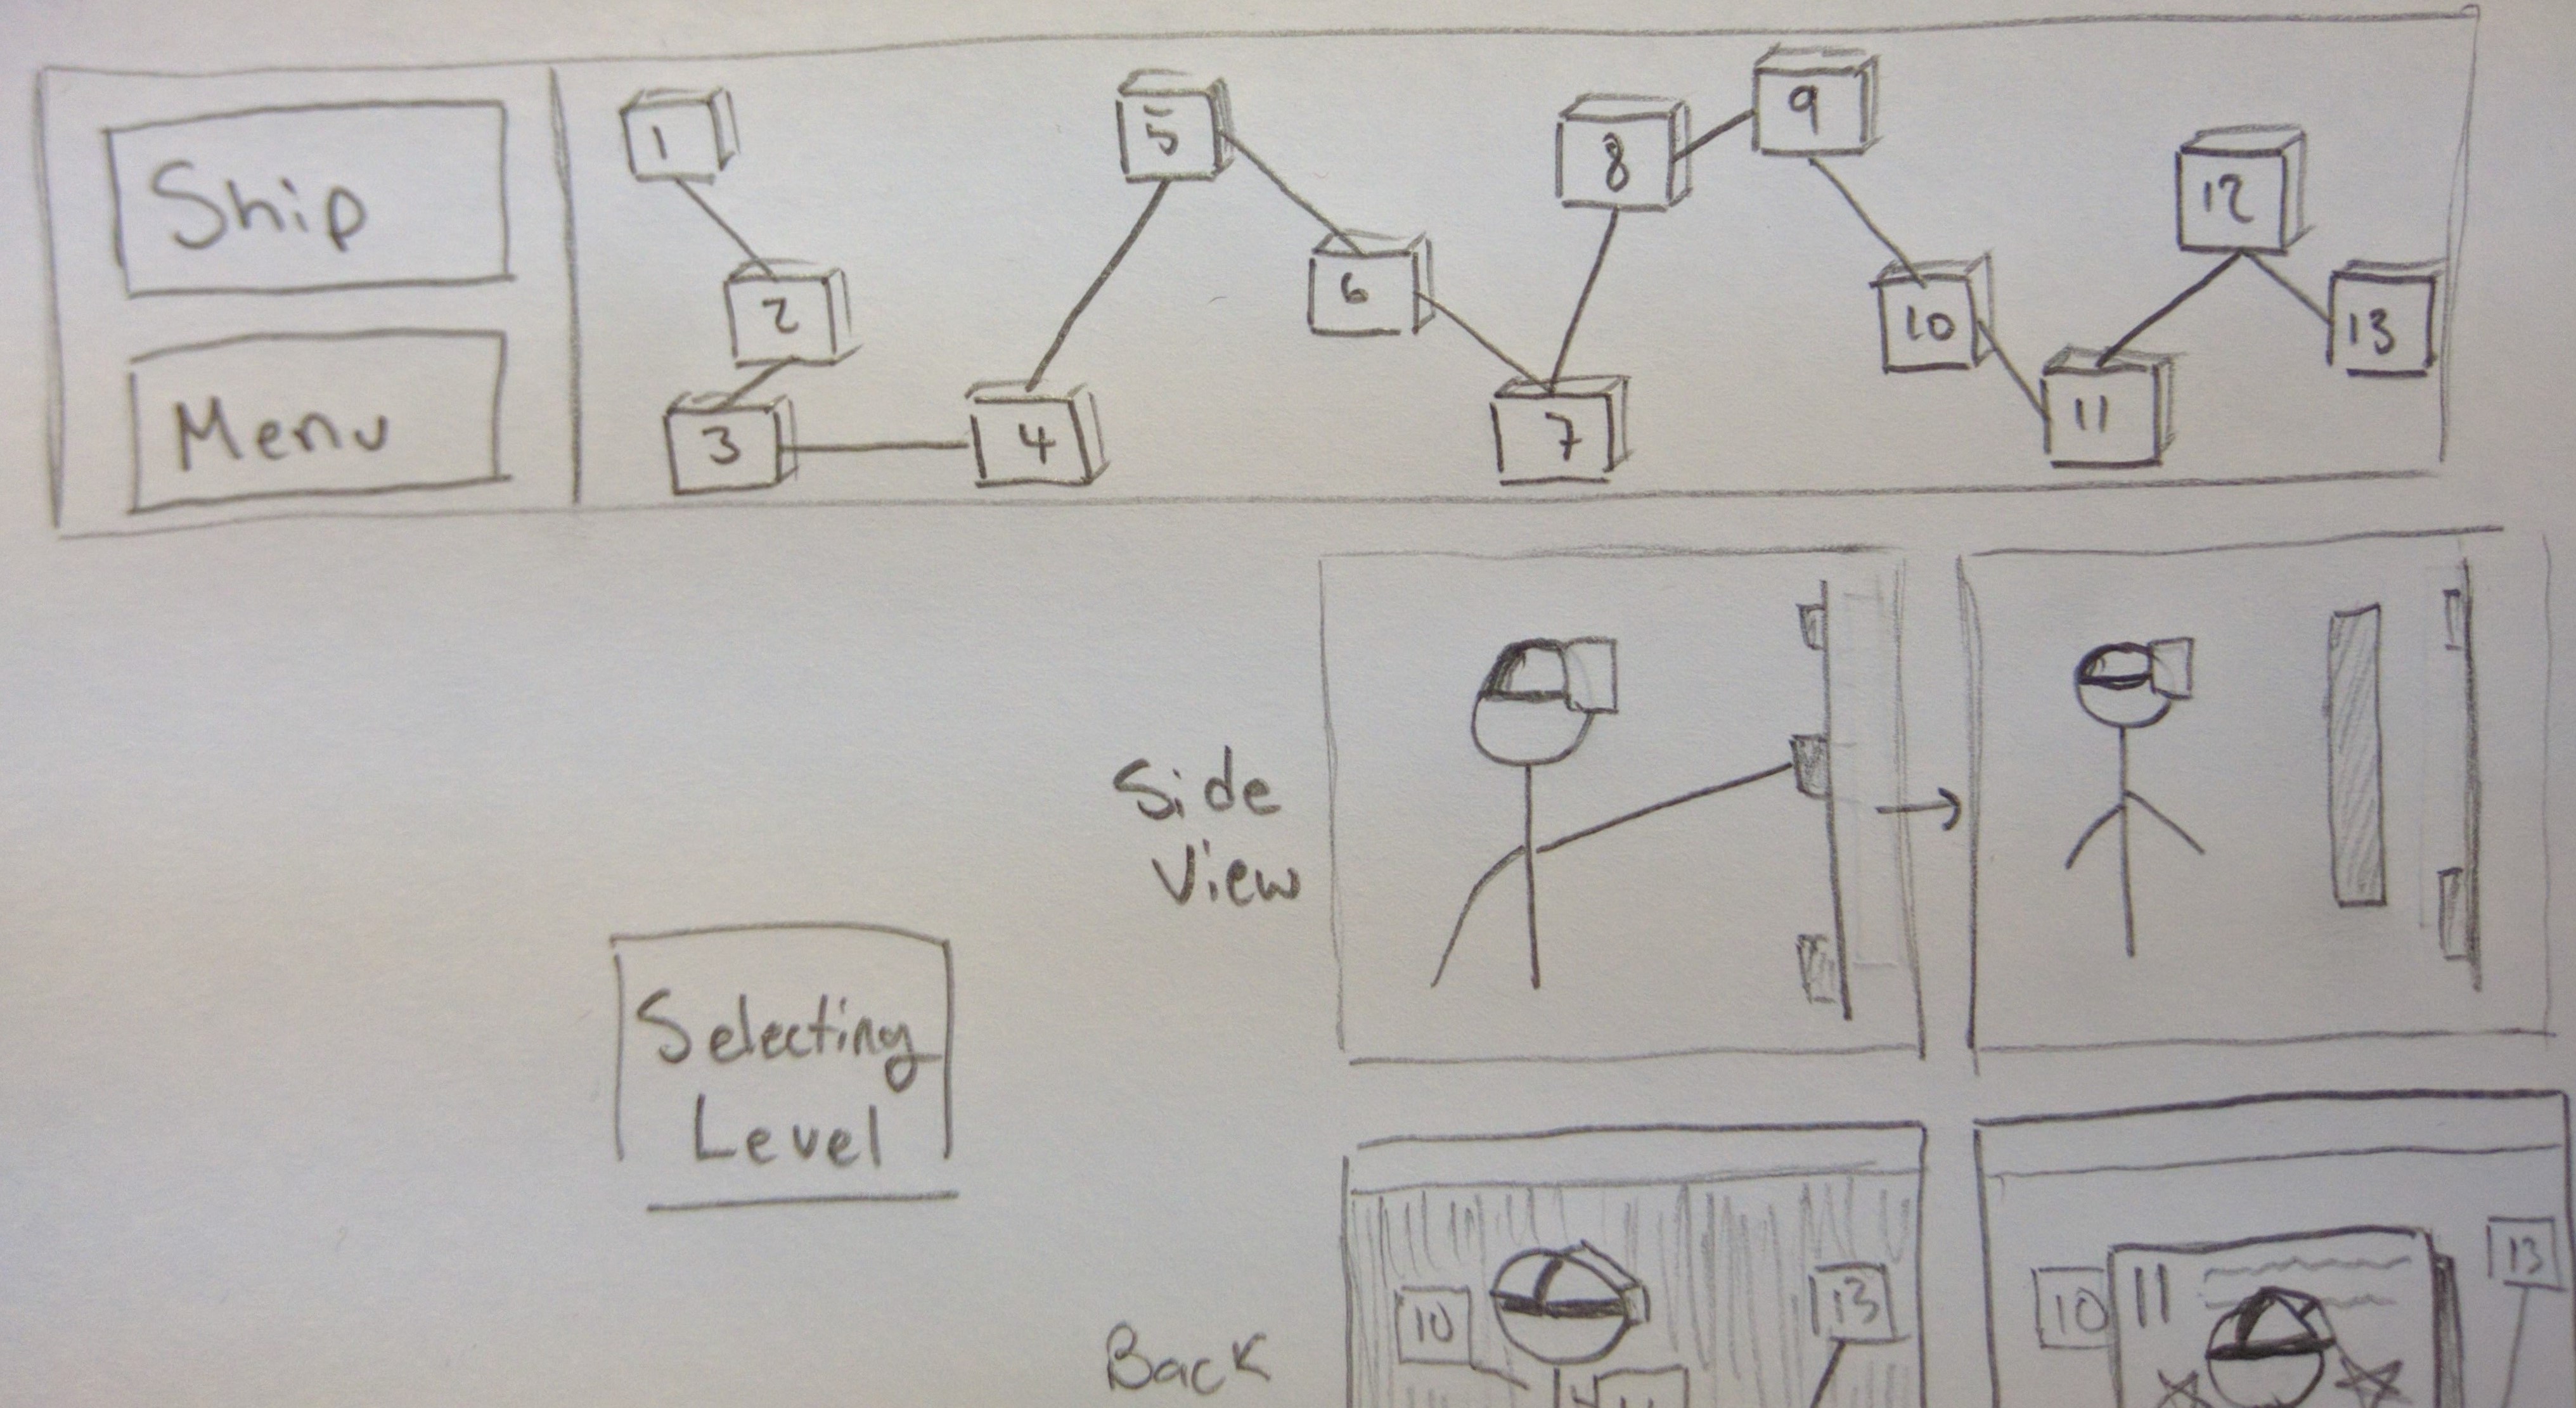 Ship
Menu
1
2
3
4
5
6
7
8
9
10
11
12
13
Side
View
Selecting
Level
Back
10
13
10
11
13